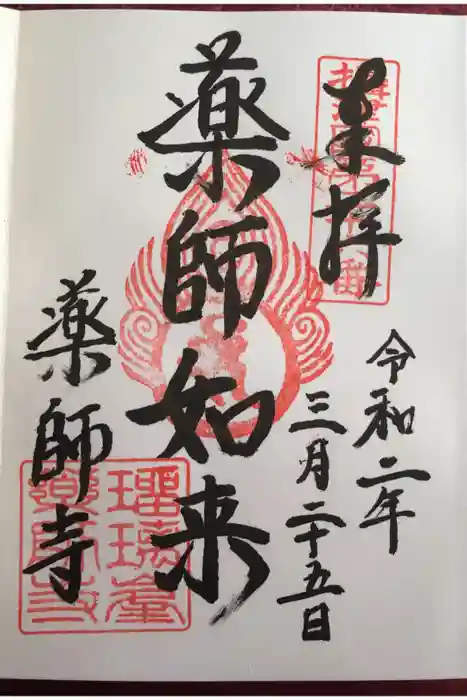 奉拝
令和二年
三月二十五日
薬師如来
薬師寺
瑠璃山
薬師寺